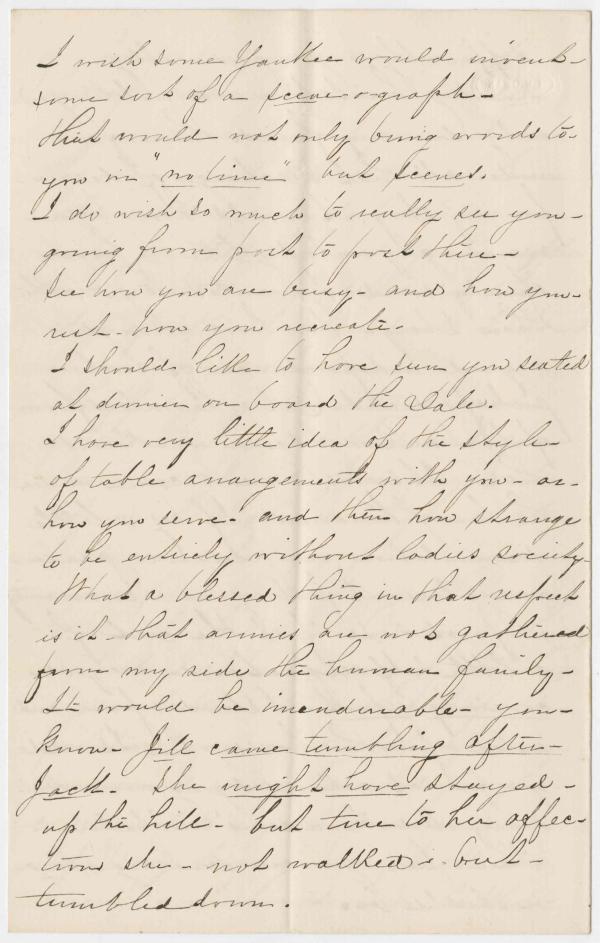 I wish some Yankee would invent-
some sort of a scene-o-graph-
that would not only bring words to-
you in "no time" but scenes.
I do wish so much to really see you-
going from post to post there-
see how you are busy- and how you-
rest- how you recreate.
I should like to have seen you seated
at dinner on board the Dale.
I have very little idea of the style-
of table arrangements with you- or-
how you serve- and then how strange
to be entirely without ladies society-
What a blessed thing in that respect
is it- that armies are not gathered
from my side the human family-
It would be unendurable- you-
know- Jill came tumbling after-
Jack- She might have stayed-
up the hill- but true to her affec-
tion she- not walked- but-
tumbled down.